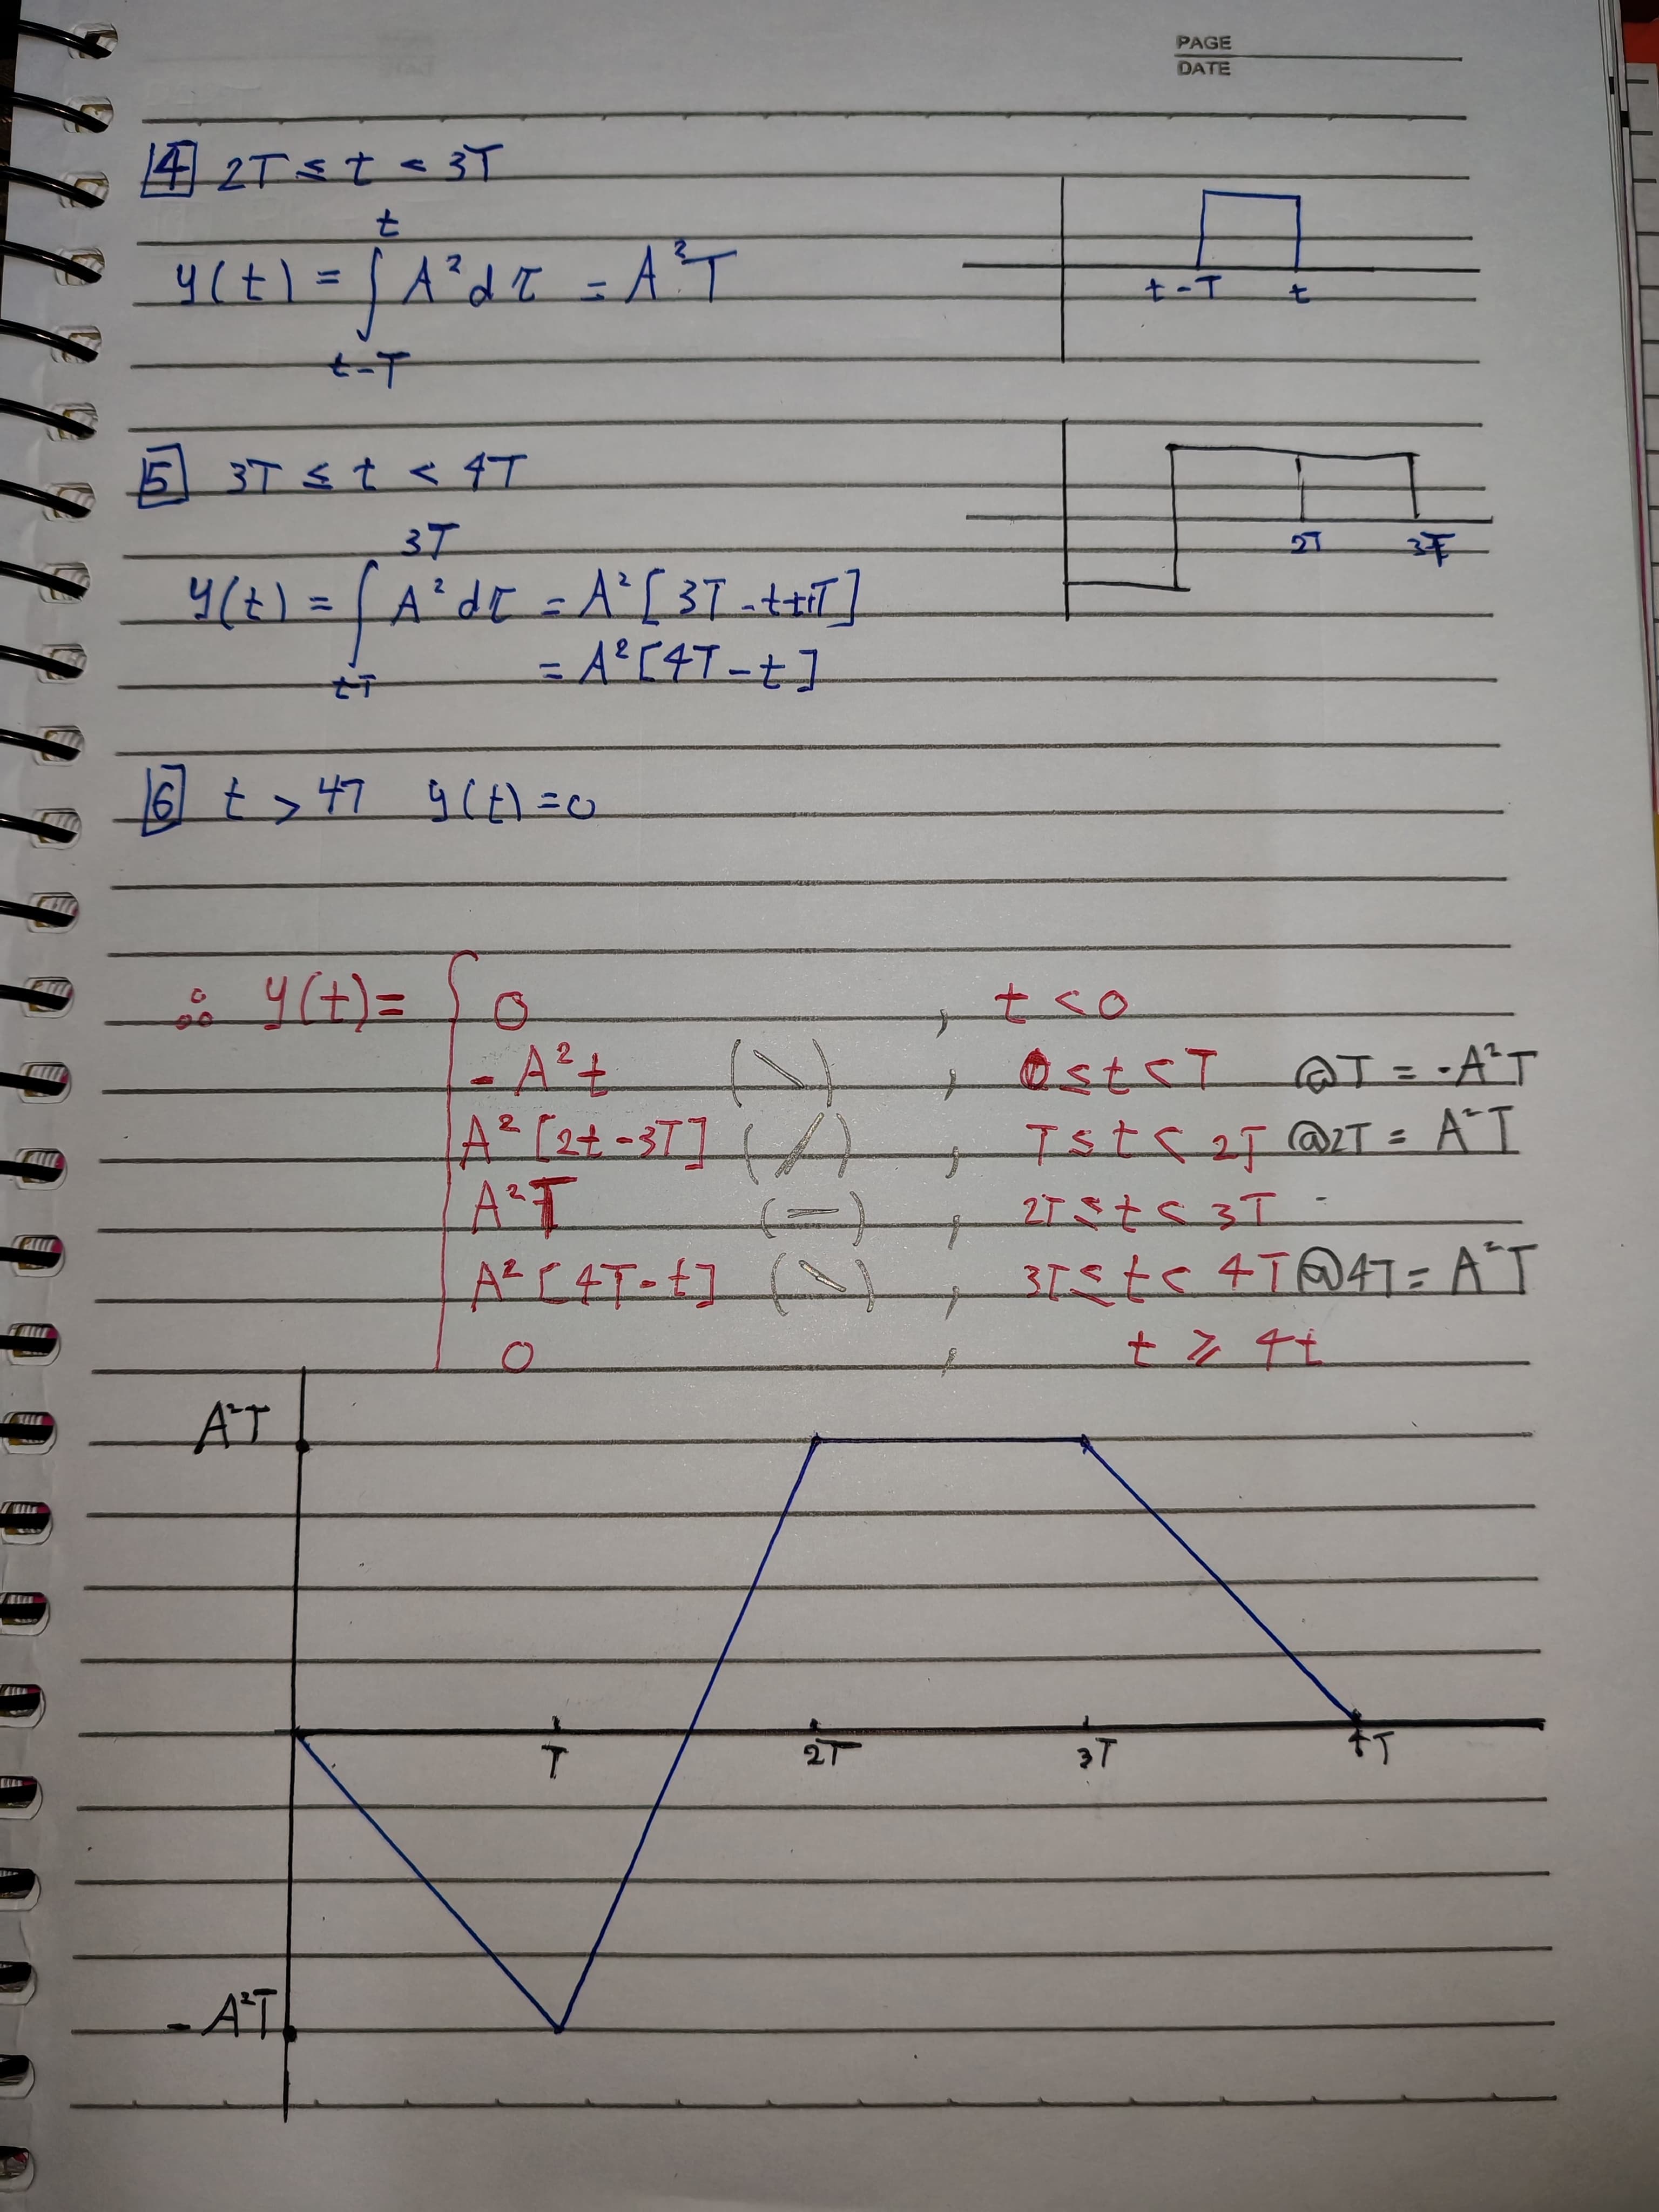 PAGE
DATE
4 2T ≤ t < 3T
y(t) = ∫ₜ₋Tᵗ A² dτ = A²T
t-T t
5 3T ≤ t < 4T
2T 3T
y(t) = ∫ₜ₋T³ᵀ A² dτ = A² [3T - t + T]
= A² [4T - t]
6 t > 4T y(t) = 0
∴ y(t) = { 0 , t < 0
- A²t (\) , 0 ≤ t < T @T = -A²T
A² [2t - 3T] (/) , T ≤ t < 2T @2T = A²T
A²T (—) , 2T ≤ t < 3T
A² [4T - t] (\) , 3T ≤ t < 4T @4T = A²T
0 , t ≥ 4t
A²T
T 2T 3T 4T
- A²T